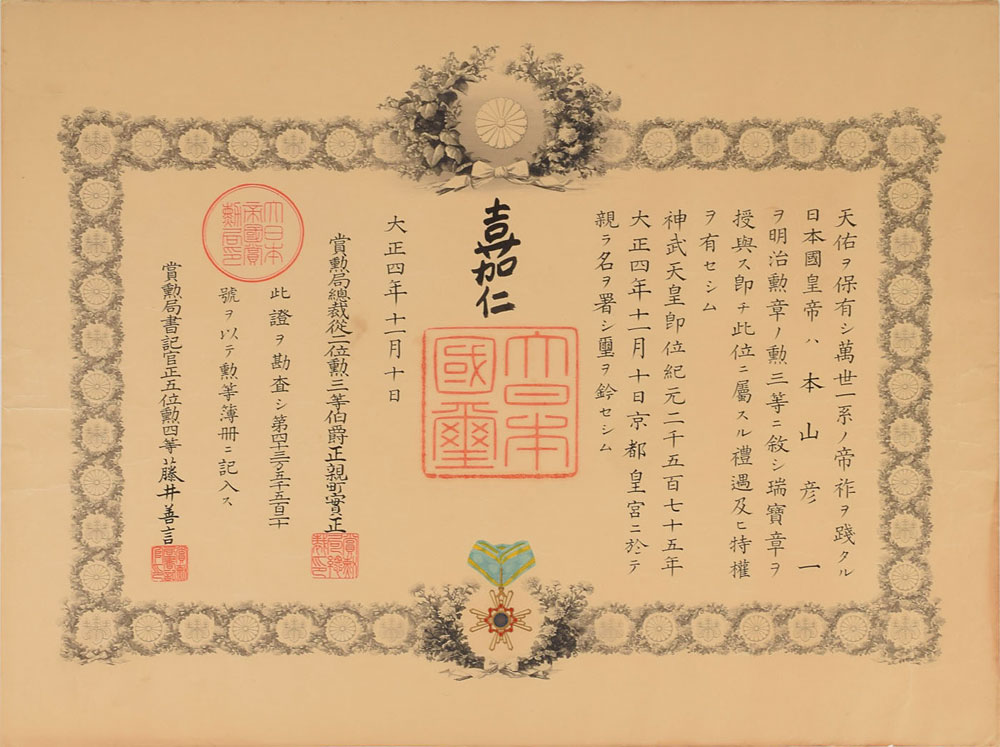 天佑ヲ保有シ萬世一系ノ帝祚ヲ踐タル
日本國皇帝ハ本山彦一
ヲ明治勲章ノ勲三等ニ敘シ瑞寶章ヲ
授與ス即チ此位ニ屬スル禮遇及ヒ特權
ヲ有セシム
神武天皇即位紀元二千五百七十五年
大正四年十一月十日京都皇宮ニ於テ
親ラ名ヲ署シ璽ヲ鈐セシム
嘉仁
大日本國璽
大正四年十一月十日
賞勲局總裁從二位勲三等伯爵正親町實正
大日本帝國賞勲局印
此證ヲ勘査シ第四十三万五千五百二十
號ヲ以テ勲等簿册ニ記入ス
賞勲局書記官正五位勲四等藤井善言